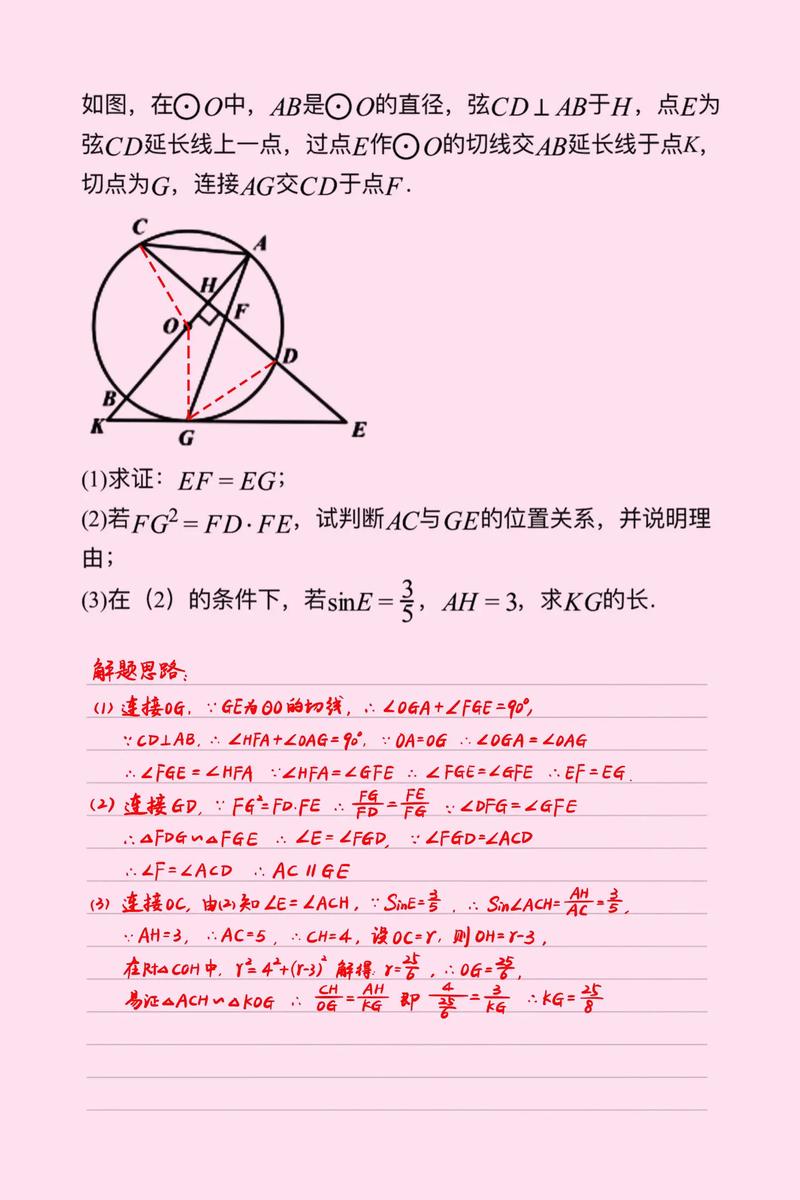 如图，在⊙O中，AB是⊙O的直径，弦CD⊥AB于H，点E为
弦CD延长线上一点，过点E作⊙O的切线交AB延长线于点K，
切点为G，连接AG交CD于点F．
C
A
H
F
O
D
B
K
G
E
(1)求证：EF＝EG；
(2)若FG²＝FD·FE，试判断AC与GE的位置关系，并说明理
由；
(3)在（2）的条件下，若sinE＝3/5，AH＝3，求KG的长．
解题思路：
(1) 连接OG，∵GE为⊙O的切线，∴∠OGA+∠FGE=90°，
∵CD⊥AB，∴∠HFA+∠OAG=90°，∵OA=OG ∴∠OGA=∠OAG
∴∠FGE=∠HFA ∵∠HFA=∠GFE ∴∠FGE=∠GFE ∴EF=EG．
(2) 连接GD，∵FG²=FD·FE ∴FG/FD=FE/FG ∵∠DFG=∠GFE
∴△FDG∽△FGE ∴∠E=∠FGD，∵∠FGD=∠ACD
∴∠F=∠ACD ∴AC∥GE
(3) 连接OC，由(2)知∠E=∠ACH，∵SinE=3/5，∴Sin∠ACH=AH/AC=3/5，
∵AH=3，∴AC=5，∴CH=4，设OC=r，则OH=r-3，
在Rt△COH中，r²=4²+(r-3)² 解得：r=25/6，∴OG=25/6，
易证△ACH∽△KOG ∴CH/OG=AH/KG 即 4/(25/6)=3/KG ∴KG=25/8